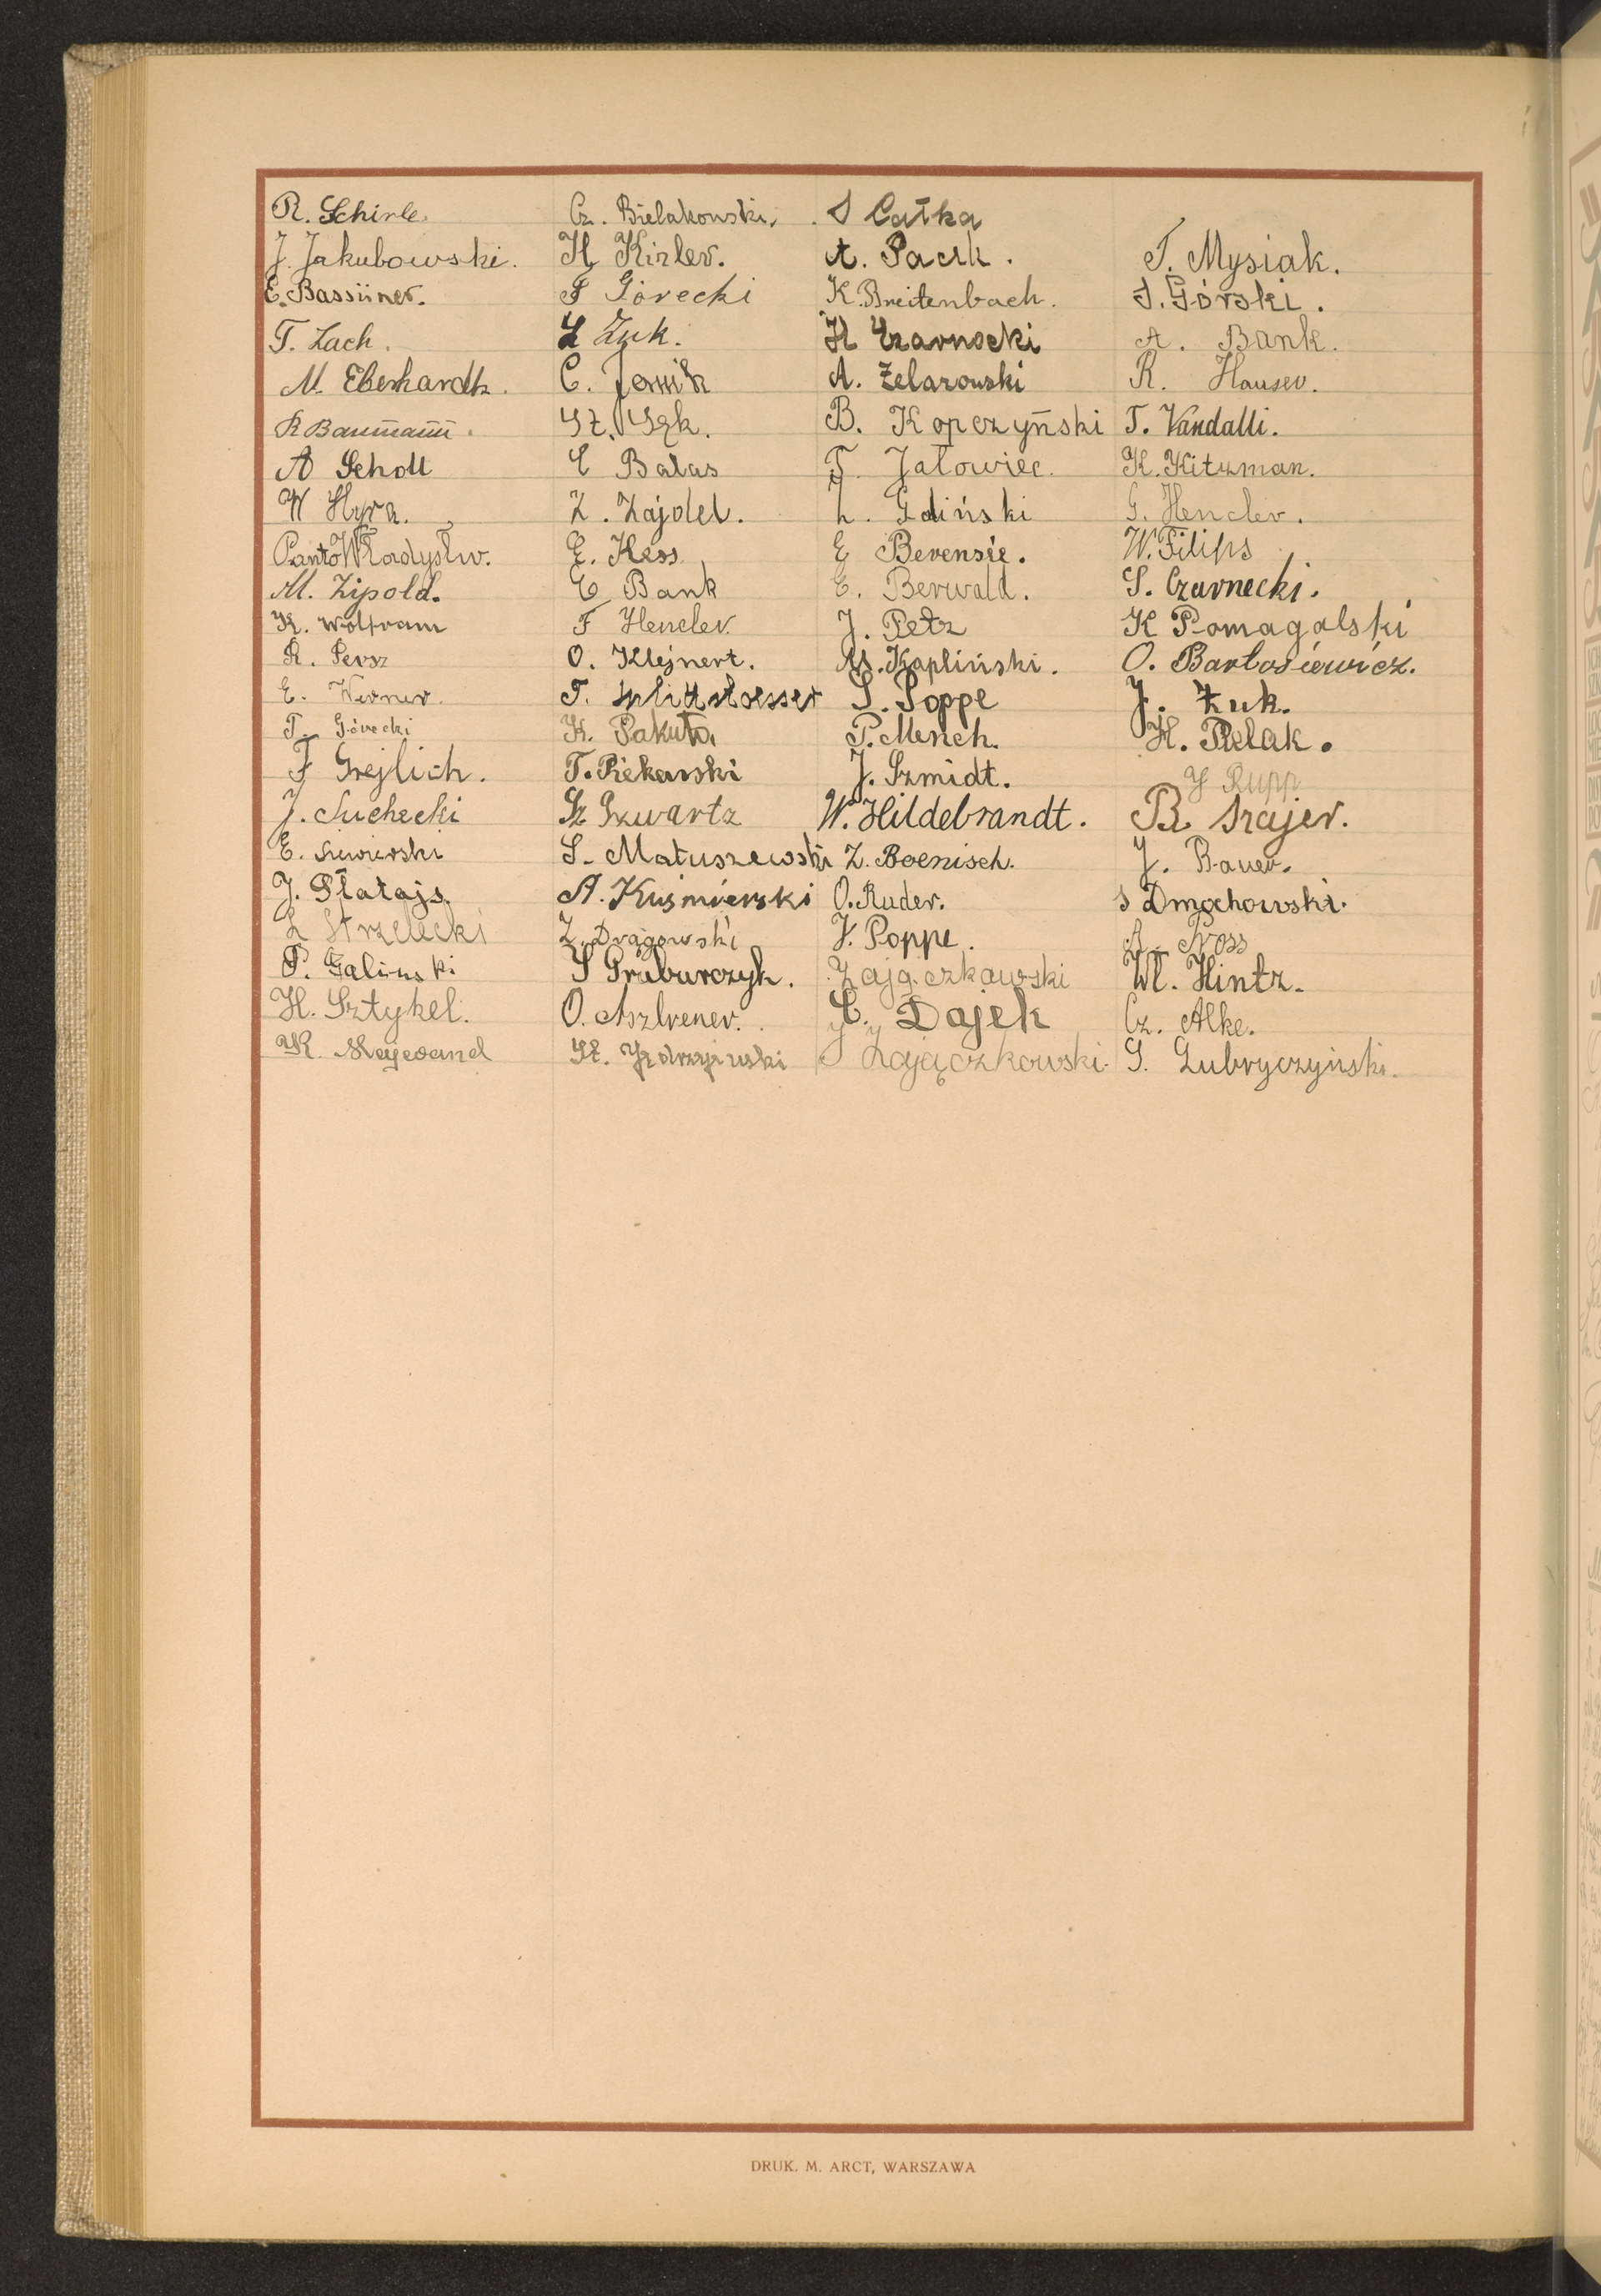 R. Schirle.
J. Jakubowski.
E. Bassüner.
T. Zach.
M. Eberhardt.
R Baumann.
A Scholl
W Hyra.
Panto Władysłw.
M. Zipold.
K. Wolfram
R. Persz
E. Werner.
T. Górecki
F Grejlich.
J. Suchecki
E.
J. Płatajs.
L Strzelecki
P. Galinski
H. Sztykel.
K.
Cz. Bielakowski.
H Kirler.
F Górecki
L Żuk.
C.
St. Sęk.
E Balas
Z. Zajdel.
E. Hess
E Bank
F Hencler.
O. Klejnert.
T. Mlittstoesser
K. Pakuła
T. Piekarski
Sz Szwartz
S. Matuszewski
A. Kuśmierski
Z. Dragowski
S Graburczyk.
O. Aszbrener.
St.
S Całka
A. Pacek.
K. Breitenbach.
H Czarnocki
A. Żelazowski
B. Kopczyński
T. Jałowiec.
L. Gdiński
E Berensie.
E. Berwald.
J. Petz
M. Kapliński.
S. Poppe
P. Mench.
J. Szmidt.
W. Hildebrandt.
Z. Boenisch.
O. Ruder.
V. Poppe.
Zajączkowski
C. Dajek
J Zajączkowski.
T. Mysiak.
S. Górski.
A. Bank.
R. Hauser.
T. Vandalli.
K. Kitzman.
G. Hencler.
W. Filips
S. Czarnecki.
K Pomagalski
O. Bartosiewicz.
J. Żuk.
H. Relak.
J Rupp
B. Szajer.
J. Bauer.
S Dmochowski.
A. Noss
Wl. Hintz.
Cz. Alke.
S. Lubryczyński.
DRUK. M. ARCT, WARSZAWA